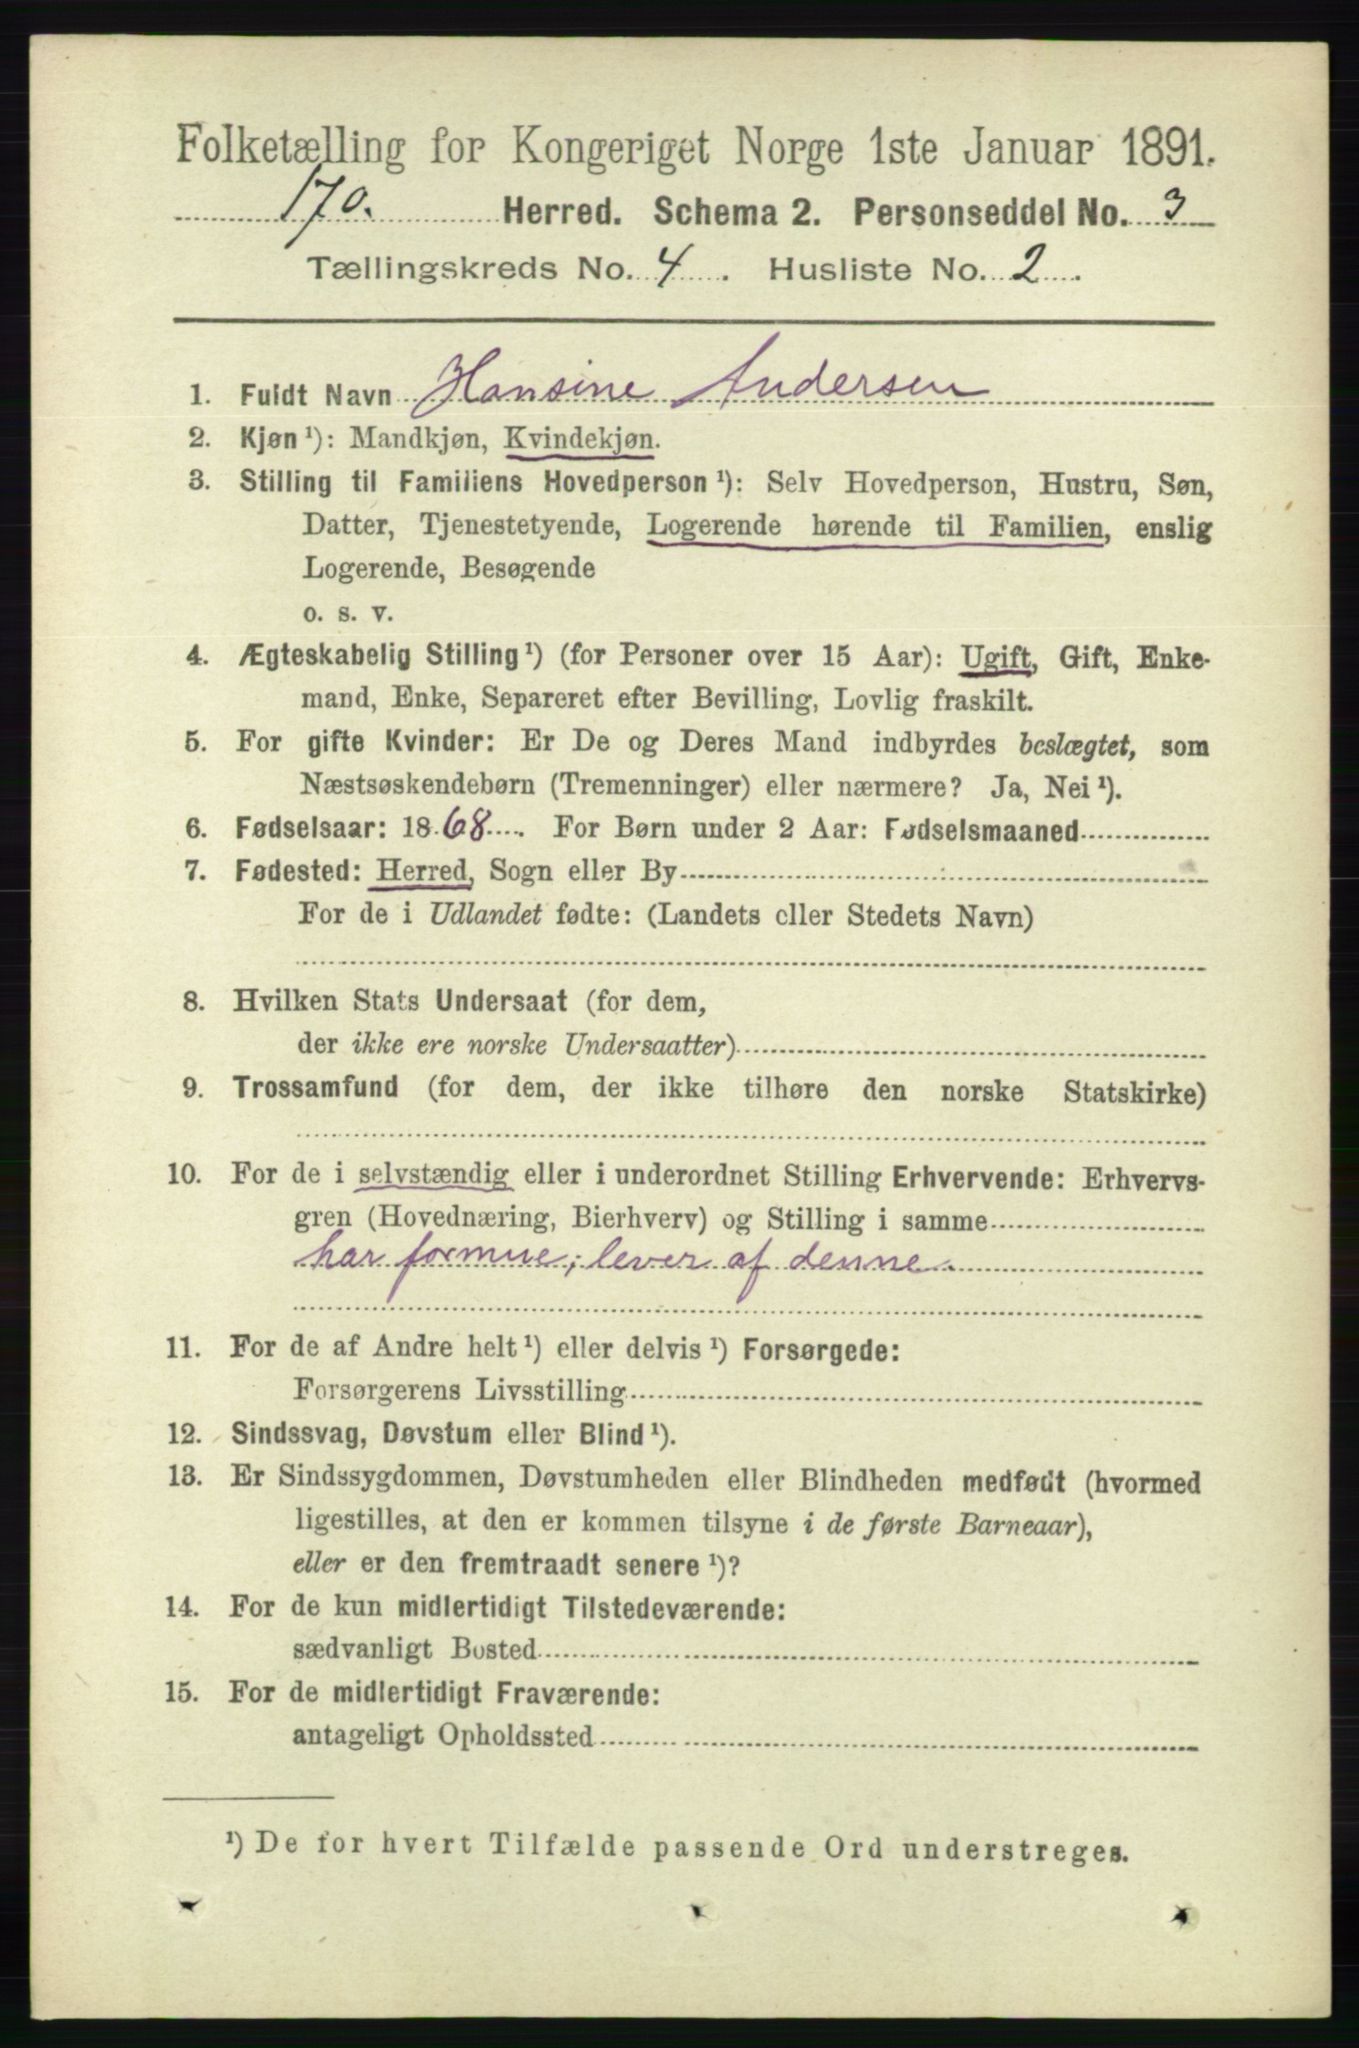 Folketælling for Kongeriget Norge 1ste Januar 1891.
170. Herred. Schema 2. Personseddel No. 3
Tællingskreds No. 4. Husliste No. 2.
1. Fuldt Navn Hansine Andersen
2. Kjøn¹): Mandkjøn, Kvindekjøn.
3. Stilling til Familiens Hovedperson¹): Selv Hovedperson, Hustru, Søn,
Datter, Tjenestetyende, Logerende hørende til Familien, enslig
Logerende, Besøgende
o. s. v.
4. Ægteskabelig Stilling¹) (for Personer over 15 Aar): Ugift, Gift, Enke-
mand, Enke, Separeret efter Bevilling, Lovlig fraskilt.
5. For gifte Kvinder: Er De og Deres Mand indbyrdes beslægtet, som
Næstsøskendebørn (Tremenninger) eller nærmere? Ja, Nei¹).
6. Fødselsaar: 1868. For Børn under 2 Aar: Fødselsmaaned
7. Fødested: Herred, Sogn eller By
For de i Udlandet fødte: (Landets eller Stedets Navn)
8. Hvilken Stats Undersaat (for dem,
der ikke ere norske Undersaatter)
9. Trossamfund (for dem, der ikke tilhøre den norske Statskirke)
10. For de i selvstændig eller i underordnet Stilling Erhvervende: Erhvervs-
gren (Hovednæring, Bierhverv) og Stilling i samme
har formue; lever af denne.
11. For de af Andre helt¹) eller delvis¹) Forsørgede:
Forsørgerens Livsstilling
12. Sindssvag, Døvstum eller Blind¹).
13. Er Sindssygdommen, Døvstumheden eller Blindheden medfødt (hvormed
ligestilles, at den er kommen tilsyne i de første Barneaar),
eller er den fremtraadt senere¹)?
14. For de kun midlertidigt Tilstedeværende:
sædvanligt Bosted
15. For de midlertidigt Fraværende:
antageligt Opholdssted
¹) De for hvert Tilfælde passende Ord understreges.